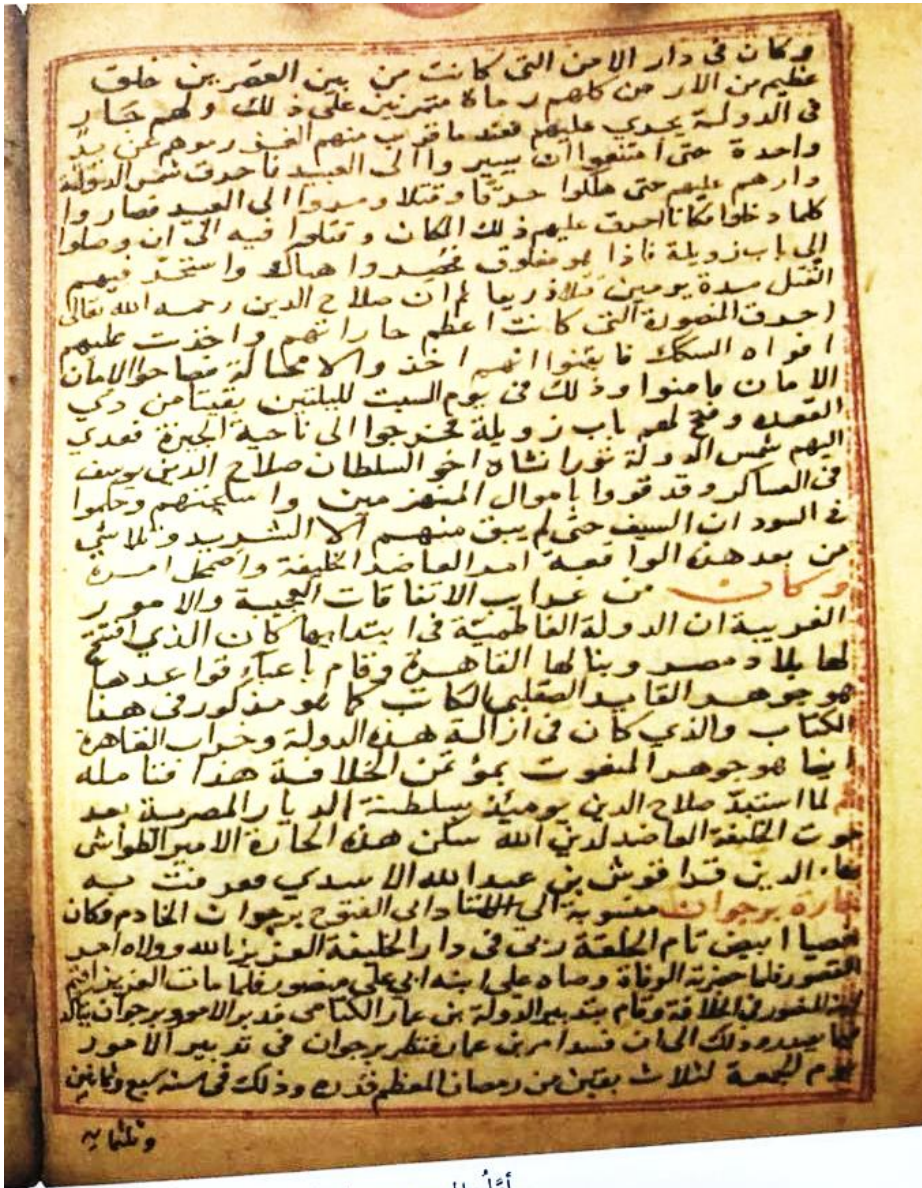 وكان فى دار الامن التى كانت من بين القصرين خلق
عظيم من الارمن كلهم رماة متمرنين على ذلك ولهم جار
فى الدولة يجدي عليهم فعند ما قرب منهم الغز رموهم عن يد
واحدة حتى امتنعوا ان يسيروا الى العبيد فاحرق شمس الدولة
دارهم عليهم حتى هلكوا حرقا وقتلا ومروا الى العبيد فصاروا
كلما دخلوا مكانا احرق عليهم ذلك المكان وقتلوا فيه الى ان وصلوا
الى باب زويلة فاذا هو مغلوق فحصروا هناك واستحر فيهم
القتل مدة يومين ثم ان صلاح الدين رحمه الله تعالى
احرق المنصورة التى كانت اعظم حاراتهم واخذت عليهم
افواه السكك فايقنوا انهم اخذوا لا محالة فصاحوا الامان
الامان فامنوا وذلك فى يوم السبت لليلتين بقيتا من ذي
القعده وفتح لهم باب زويلة فخرجوا الى ناحية الجيزة فعدي
اليهم شمس الدولة تورانشاه اخو السلطان صلاح الدين يوسف
فى العساكر وقد قووا باموال المنهزمين واسلحتهم وحكموا
فى السودان السيف حتى لم يبق منهم الا الشريد وتلاشى
من بعد هذه الواقعة امر العاضد الخليفة واضمحل امره
وكان من غرايب الاتفاقات العجيبة والامور
الغريبة ان الدولة الفاطمية فى ابتدايها كان الذي افتتح
لها بلاد مصر وبنا لها القاهرة وقام باعباء قواعدها
هو جوهر القايد الصقلبي الكاتب كما هو مذكور فى هذا
الكتاب والذي كان فى ازالة هذه الدولة وخراب القاهرة
ايضا هو جوهر المنعوت بمؤتمن الخلافة هذا فتامله
ثم لما استبد صلاح الدين يوميذ بسلطنة الديار المصرية بعد
موت الخليفة العاضد لدين الله سكن هذه الحارة الامير الطواشى
بهاء الدين قراقوش بن عبد الله الاسدي فعرفت به
حارة برجوان منسوبة الى الاستاد ابى الفتوح برجوان الخادم فكان
خصيا ابيض تام الخلقة ربى فى دار الخليفة العزيز بالله وولاه امر
القصور فلما حضرته الوفاة وصاه على ابنه ابى على منصور فلما مات العزيز اقيم
ابنه المنصور فى الخلافة وقام بتدبير الدولة بن عمار الكتامى فدبر الامور وبرجوان يناكده
فيما يصدره وذلك الى ان فسد امر بن عمار فنظر برجوان فى تدبير الامور
يوم الجمعة لثلاث بقين من رمضان المعظم قدره وذلك فى سنه سبع وثمانين
وثلثمايه